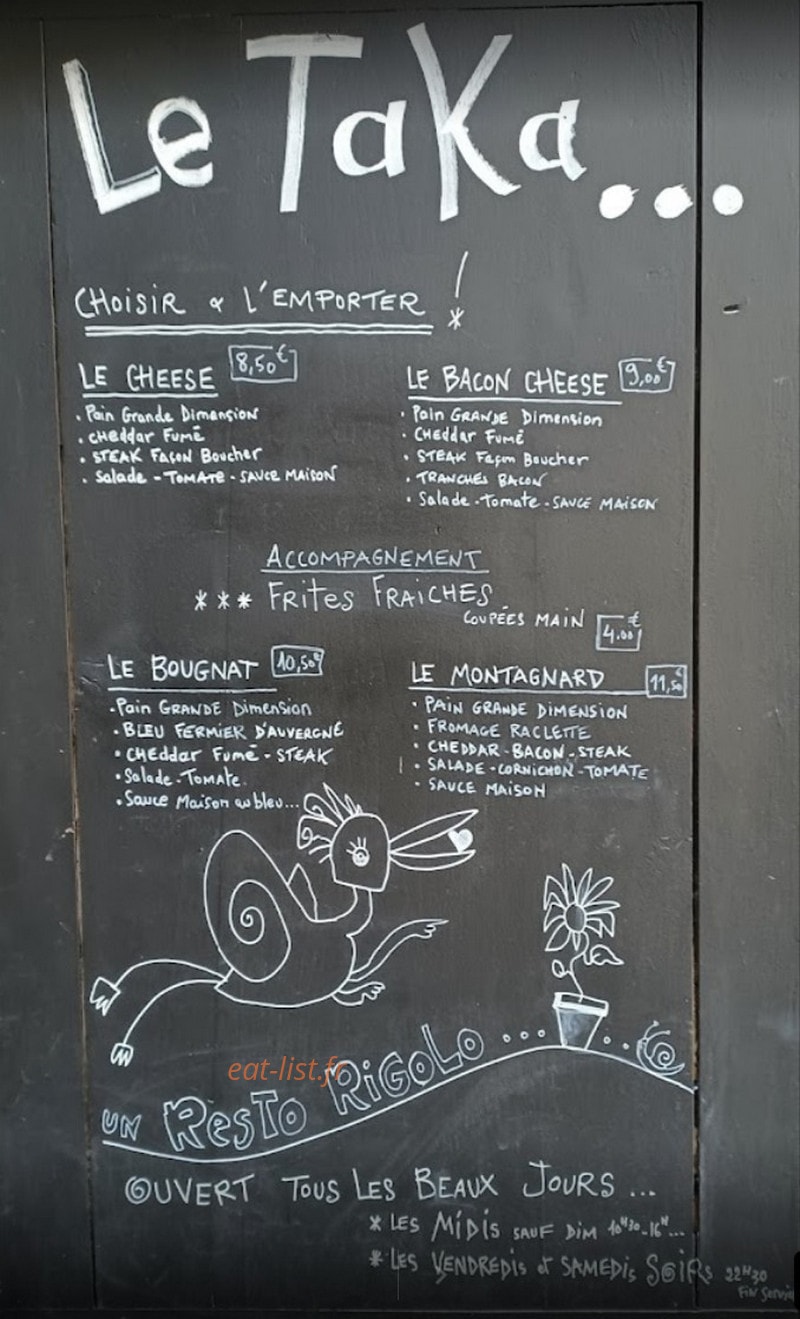 Le TaKa...
CHOISIR & L'EMPORTER !
*
LE CHEESE 8,50€
. Pain Grande Dimension
. CHEddar Fumé
. STEAK FAÇON Boucher
. Salade - TOMATE - SAUCE MAISON
LE BACON CHEESE 9,00€
. Pain GRANDE Dimension
. CHEddar Fumé
. STEAK Façon Boucher
. TRANCHES BACON
. Salade - Tomate - SAUCE MAISON
ACCOMPAGNEMENT
*** FRITES FRAICHES
COUPÉES MAIN 4.00€
LE BOUGNAT 10,50€
. Pain GRANDE Dimension
. BLEU FERMIER D'AUVERGNE
. CHEddar Fumé - STEAK
. Salade - Tomate.
. Sauce Maison au bleu...
LE MONTAGNARD 11,50€
. PAIN GRANDE DIMENSION
. FROMAGE RACLETTE
. CHEDDAR - BACON - STEAK
. SALADE - CORNICHON - TOMATE
. SAUCE MAISON
eat-list.fr
UN RESTO RIGOLO...
OUVERT TOUS LES BEAUX JOURS ...
* LES MIDIS SAUF DIM 10H30-16H...
* LES VENDREDIS et SAMEDIS SOIRS 22H30
Fin Service